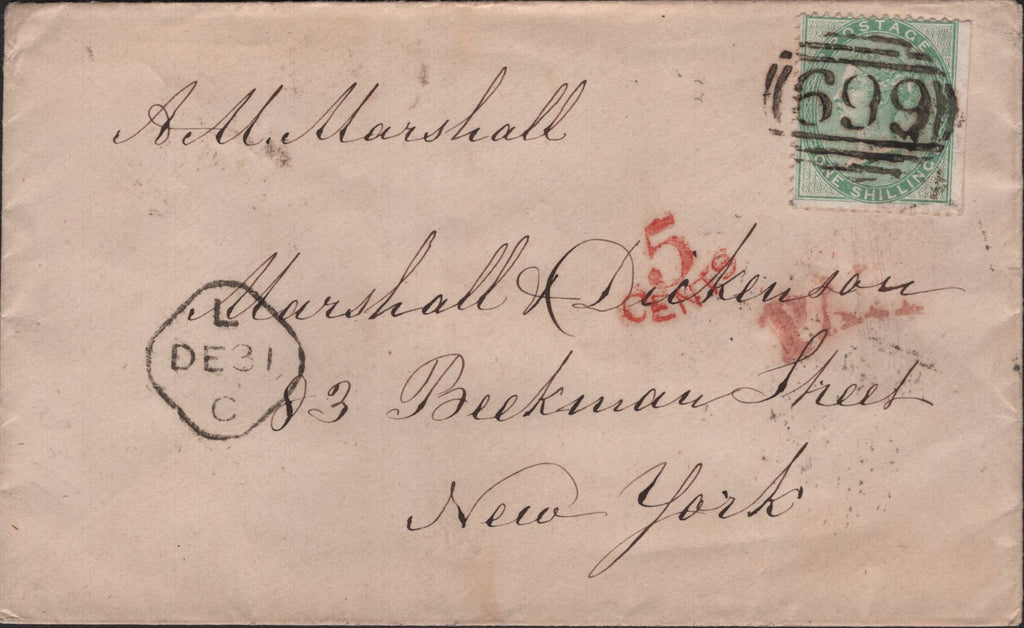 POSTAGE
699
ONE SHILLING
A.M. Marshall
5
CENTS
Marshall & Dickenson
L
DE31
C
83 Beekman Street
New York